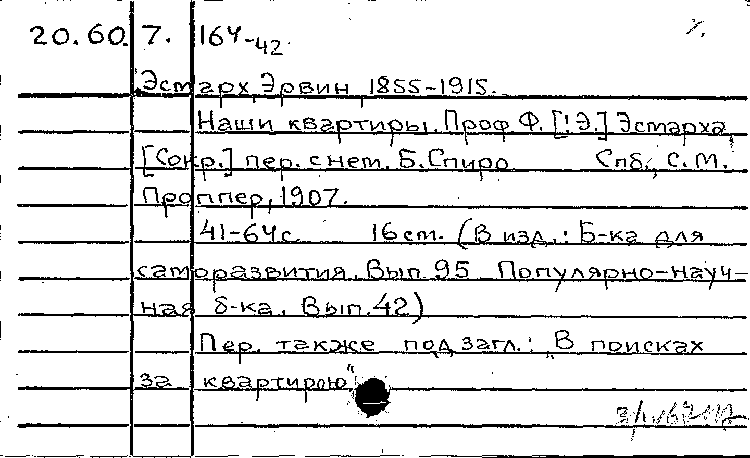 20.60.7. 164-42.
Эстарх, Эрвин, 1855-1915.
Наши квартиры. Проф. Ф. [!Э.] Эсмарха,
[Сокр.] пер. с нем. Б. Спиро Спб., С. М.
Проппер, 1907.
41-64 с. 16 см. (В изд.: Б-ка для
саморазвития. Вып. 95 Популярно-науч-
ная б-ка. Вып. 42)
Пер. также под загл.: „В поисках
за квартирою"